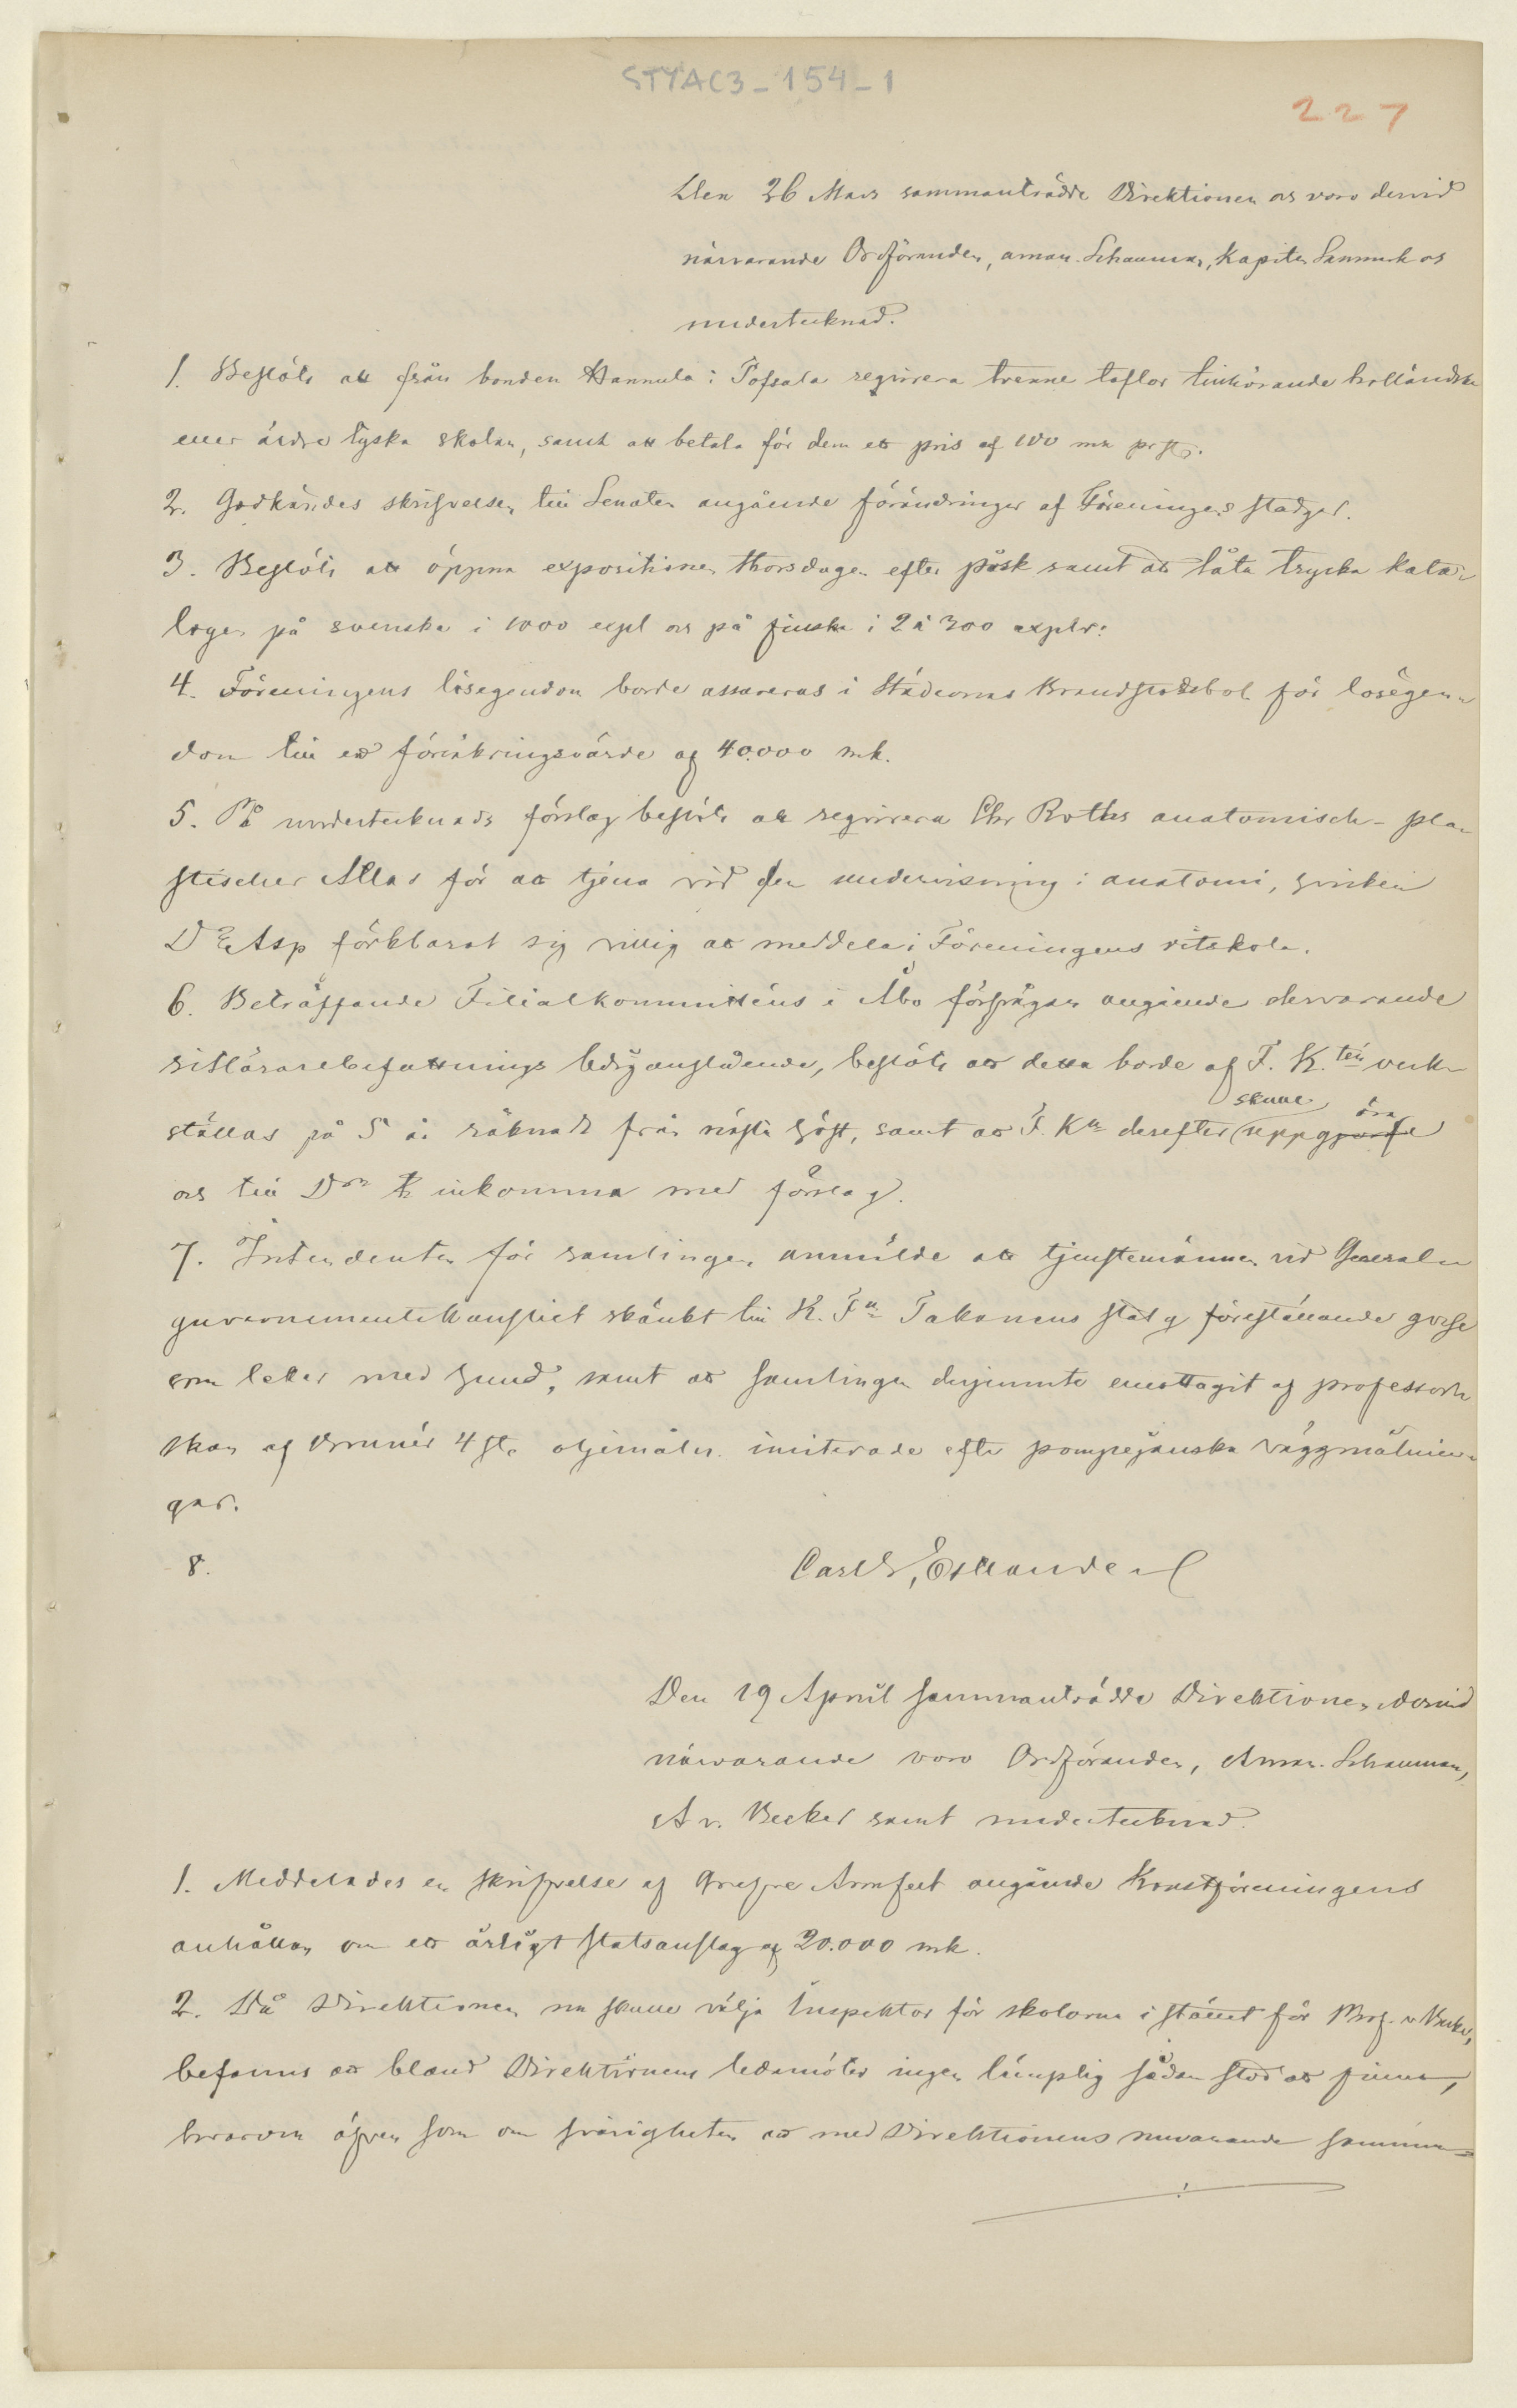 STYAC3-154-1
227
Den 26 Mars sammanträdde Direktionen os voro dervid
närvarande Ordföranden, aman. Schauman, Kapiten Sanmark os
undertecknad.
1. Beslöts att från bonden Hannula i Tofsala reqvirera trenne taflor tillhörande holländska
eller äldre tyska skolan, samt att betala för dem ett pris af 100 mk pr st.
2. Godkändes skrifvelsen till Senaten angående förändringar af Föreningens stadgar.
3. Beslöts att öppna expositionen thorsdagen efter påsk samt att låta trycka kata-
logen på svenska i 1000 expl os på finska i 2 à 300 explr:
4. Föreningens lösegendom borde assureras i Städernas Brandstodsbol. för lösegen-
dom till ett försäkringsvärde af 40.000 mk.
5. På undertecknads förslag beslöts att reqvirera Chr Roths anatomisch-pla-
stischer Atlas för att tjena vid den undervisning i anatomi, hvilken
Dr Asp förklarat sig villig att meddela i Föreningens ritskola.
6. Beträffande Filialkommitténs i Åbo förfrågan angående dervarande
ritlärarebefattnings lediganslående, beslöts att detta borde af F. K.tén verk-
ställas på 5 år räknadt från nästa höst, samt att F. Kn derefter skulle uppgöra
os till Dn inkomma med förslag.
7. Intendenten för samlingen anmälde att tjenstemännen vid General-
guvernementskansliet skänkt till K. Fn Takanens staty föreställande gosse
som leker med hund, samt att samlingen derjemnte emottagit af professorn-
skan af Brunér 4 st. oljemåln. imiterade efter pompejanska väggmålnin-
gar.
8.
Carl G, Estlander
Den 19 April sammanträdde Direktionen, dervid
närvarande voro Ordföranden, Aman. Schauman,
A v. Becker samt undertecknad.
1. Meddelades en skrifvelse af Grefve Armfelt angående Konstföreningens
anhållan om ett årligt statsanslag af 20.000 mk.
2. Då Direktionen nu skulle välja Inspektor för skolorna i stället för Prof. v Becker,
befanns att bland Direktionens ledamöter ingen lämplig sådan stod att finna,
hvarom äfven som om svårigheten att med Direktionens nuvarande samman-